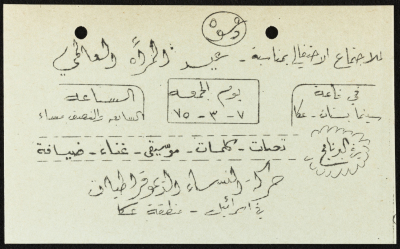 دعوة
للاجتماع الاحتفالي بمناسبة - عيد المرأة العالمي
في قاعة
سينما بستان - عكا
يوم الجمعه
٧ - ٣ - ٧٥
الساعه
السابعه والنصف مساء
في البرنامج
تحيات - كلمات - موسيقى - غناء - ضيافة
حركة النساء الديموقراطيات
في اسرائيل - منطقة عكا